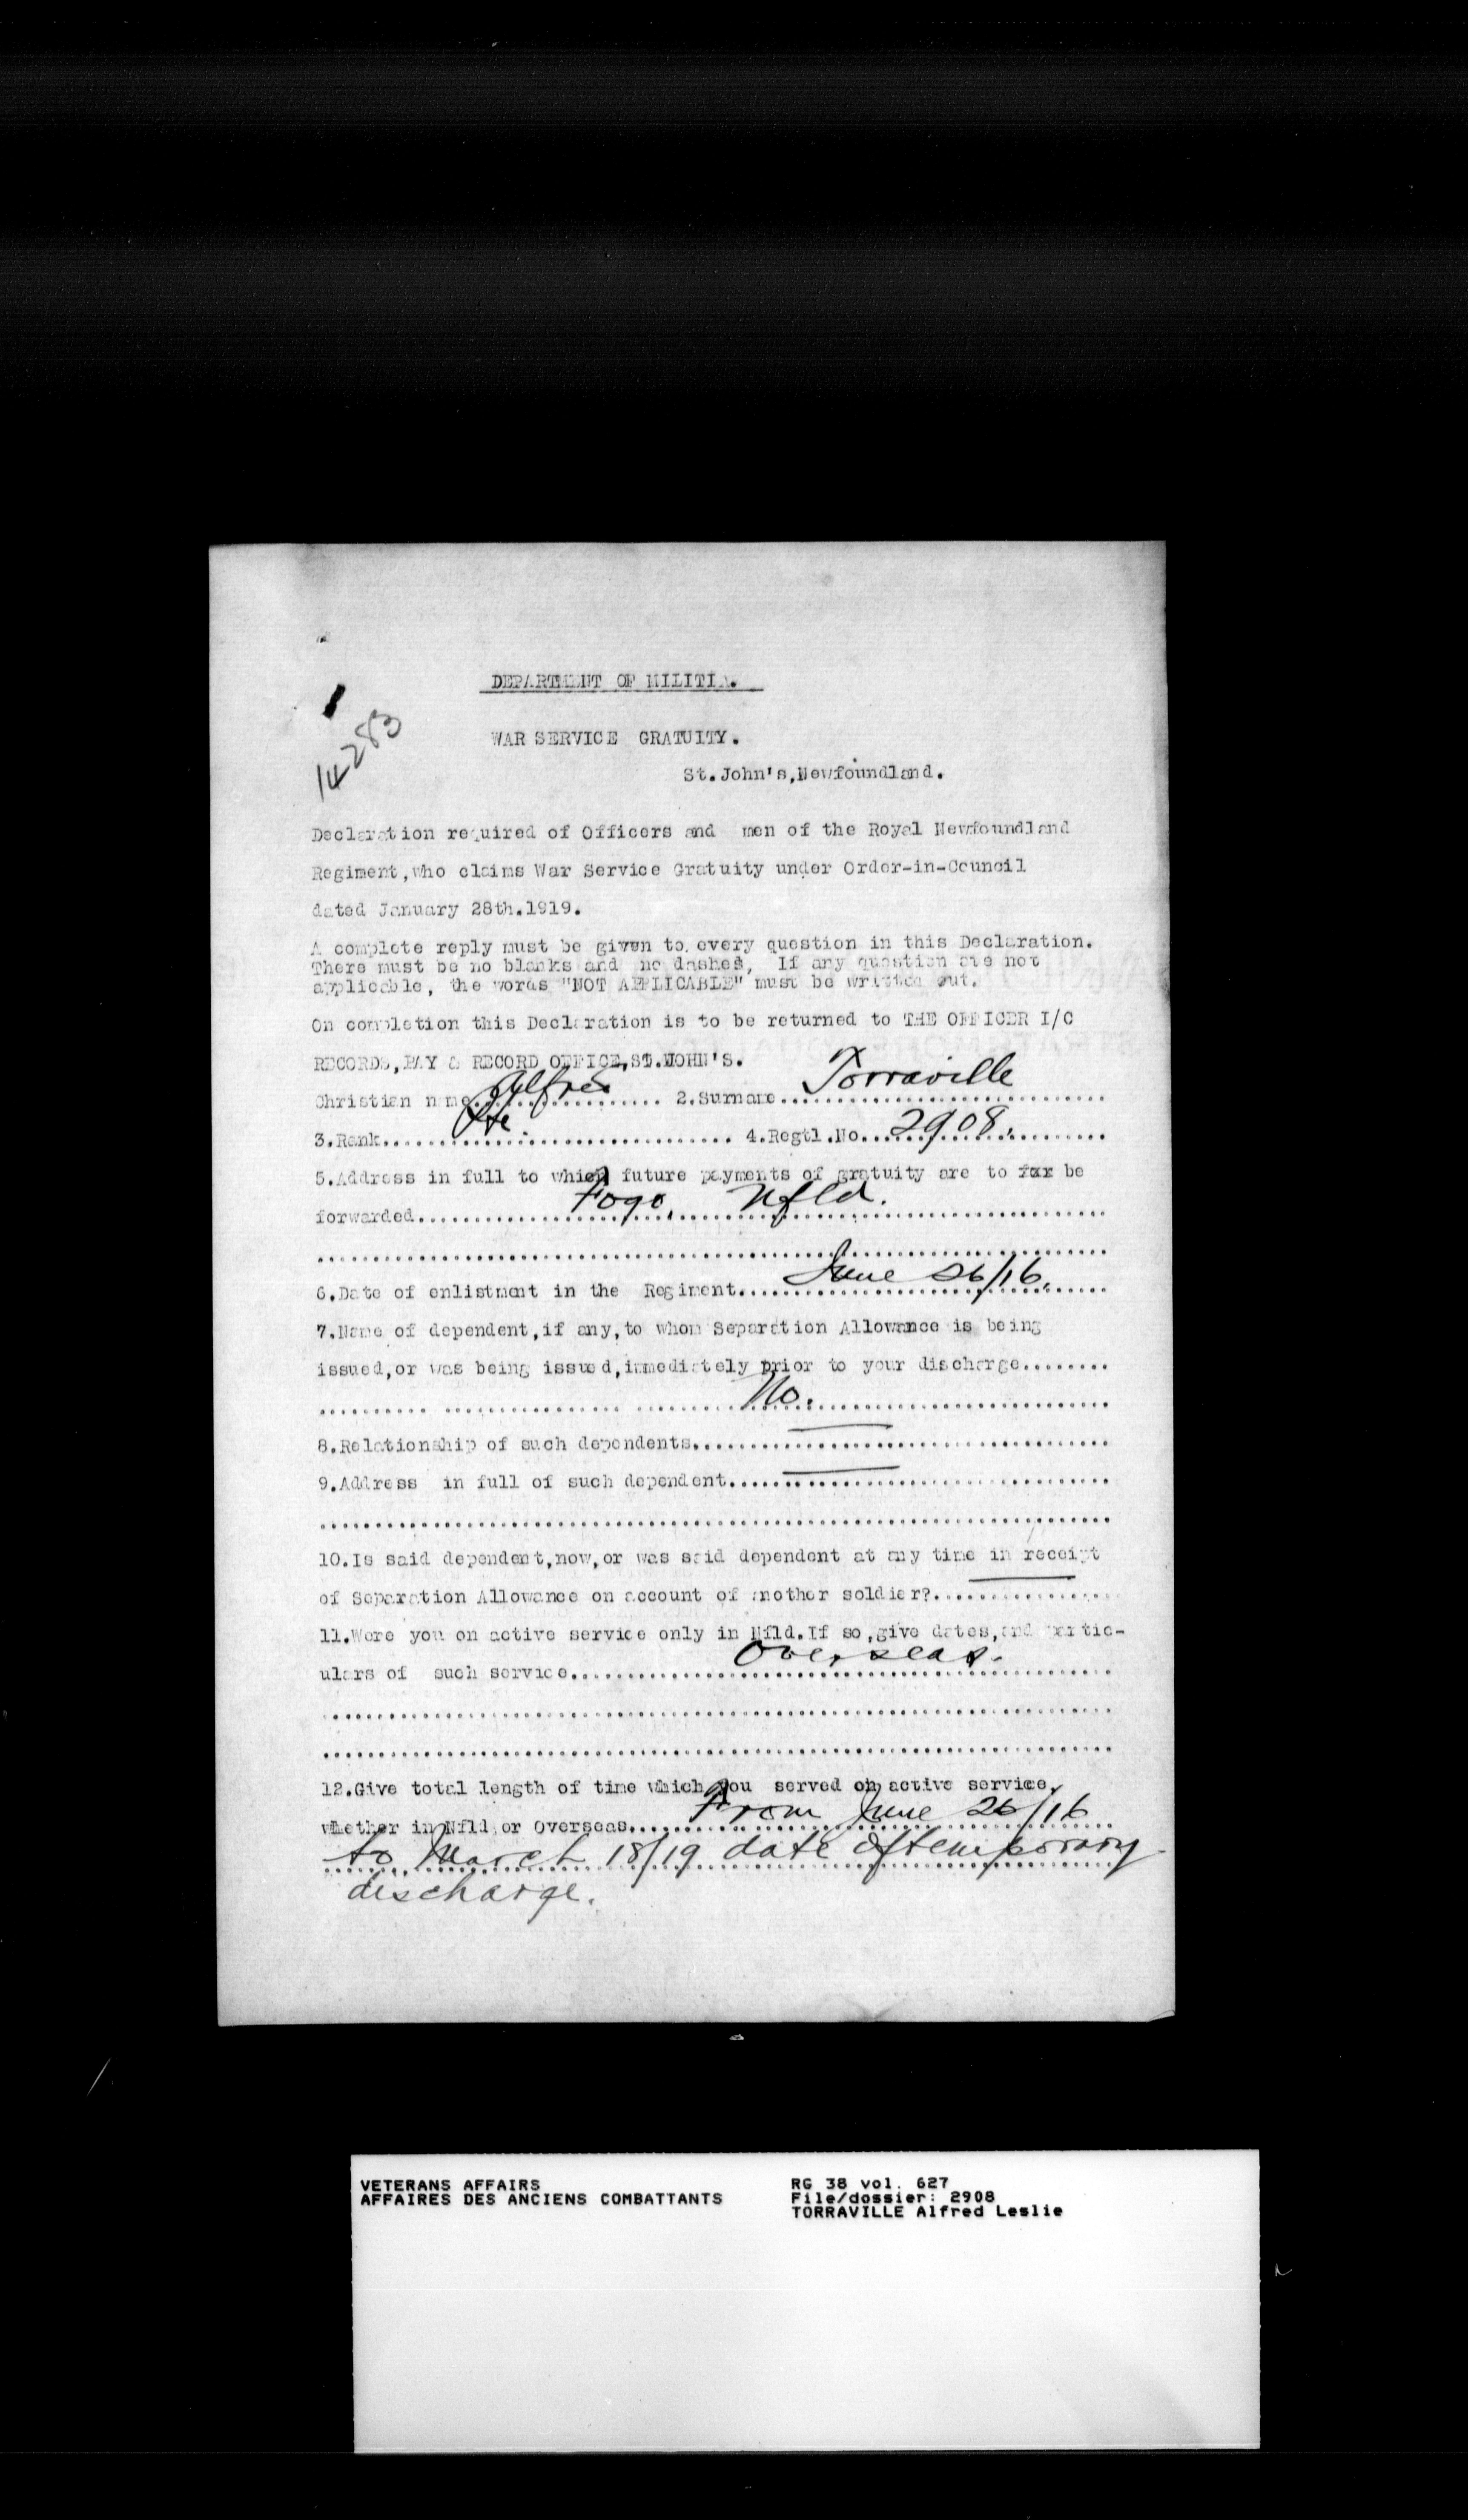 DEPARTMENT OF MILITIA.
14283
WAR SERVICE GRATUITY.
St.John's,Newfoundland.
Declaration required of Officers and men of the Royal Newfoundland
Regiment,who claims War Service Gratuity under Order-in-Council
dated January 28th.1919.
A complete reply must be given to every question in this Declaration.
There must be no blanks and no dashes, If any question are not
applicable, the words "NOT APPLICABLE" must be written out.
On completion this Declaration is to be returned to THE OFFICER I/C
RECORDS,PAY & RECORD OFFICE,ST.JOHN'S.
Christian name...Alfred... 2.Surname...Torraville...
3.Rank...Pte.... 4.Regtl.No...2908....
5.Address in full to which future payments of gratuity are to fxx be
forwarded...Fogo, Nfld....
6.Date of enlistment in the Regiment...June 26/16....
7.Name of dependent,if any,to whom Separation Allowance is being
issued,or was being issued,immediately prior to your discharge........
...No....
8.Relationship of such dependents...
9.Address in full of such dependent...
10.Is said dependent,now,or was said dependent at any time in receipt
of Separation Allowance on account of another soldier?...
11.Were you on active service only in Nfld.If so,give dates,and partic-
ulars of such service...Overseas....
12.Give total length of time which you served on active service,
whether in Nfld,or Overseas...From June 26/16
to March 18/19 date of temporary
discharge.
VETERANS AFFAIRS
AFFAIRES DES ANCIENS COMBATTANTS
RG 38 vol. 627
File/dossier: 2908
TORRAVILLE Alfred Leslie